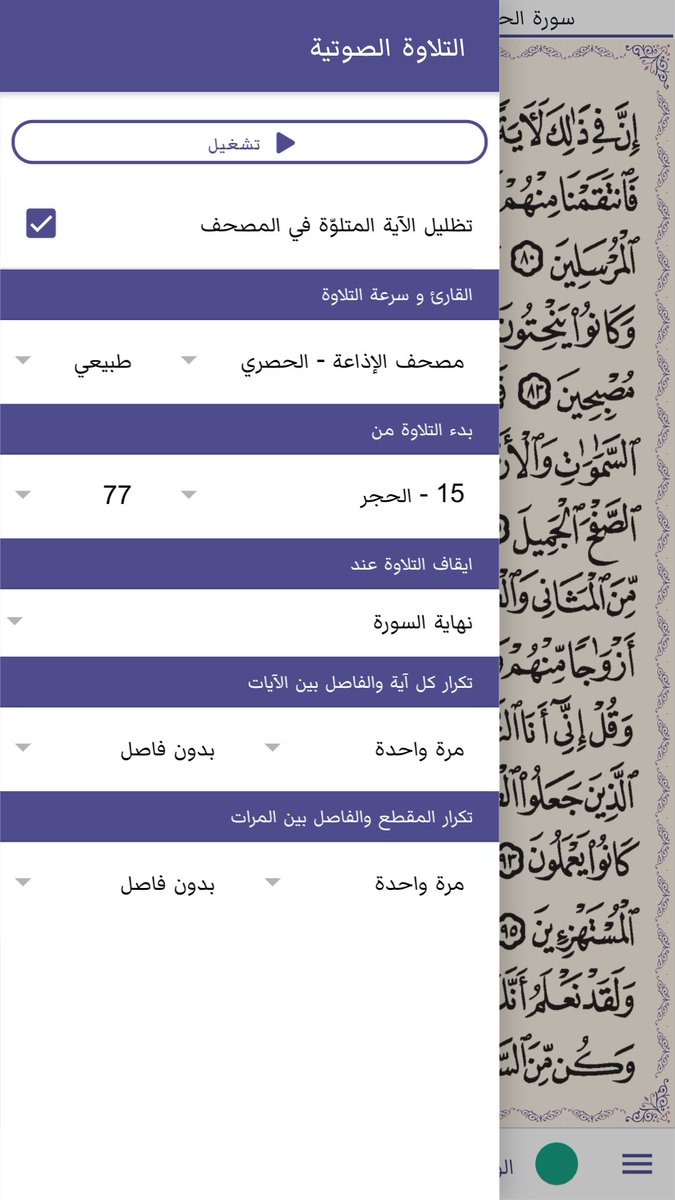 التلاوة الصوتية
تشغيل
تظليل الآية المتلوّة في المصحف
القارئ و سرعة التلاوة
مصحف الإذاعة - الحصري طبيعي
بدء التلاوة من
15 - الحجر 77
ايقاف التلاوة عند
نهاية السورة
تكرار كل آية والفاصل بين الآيات
مرة واحدة بدون فاصل
تكرار المقطع والفاصل بين المرات
مرة واحدة بدون فاصل
سورة
إِنَّ فِي ذَٰلِكَ لَأٓيَةً
فَٱنتَقَمْنَا مِنْهُمْ
ٱلْمُرْسَلِينَ ٨٠
وَكَانُوا۟ يَنْحِتُونَ
مُصْبِحِينَ ٨٣
ٱلسَّمَٰوَٰتِ
ٱلصَّفْحَ ٱلْجَمِيلَ
مِّنَ ٱلْمَثَانِي
أَزْوَٰجًا مِّنْهُمْ
وَقُلْ إِنِّيٓ أَنَا
ٱلَّذِينَ جَعَلُوا۟
كَانُوا۟ يَعْمَلُونَ ٩٣
ٱلْمُسْتَهْزِءِينَ ٩٥
وَلَقَدْ نَعْلَمُ
وَكُن مِّنَ